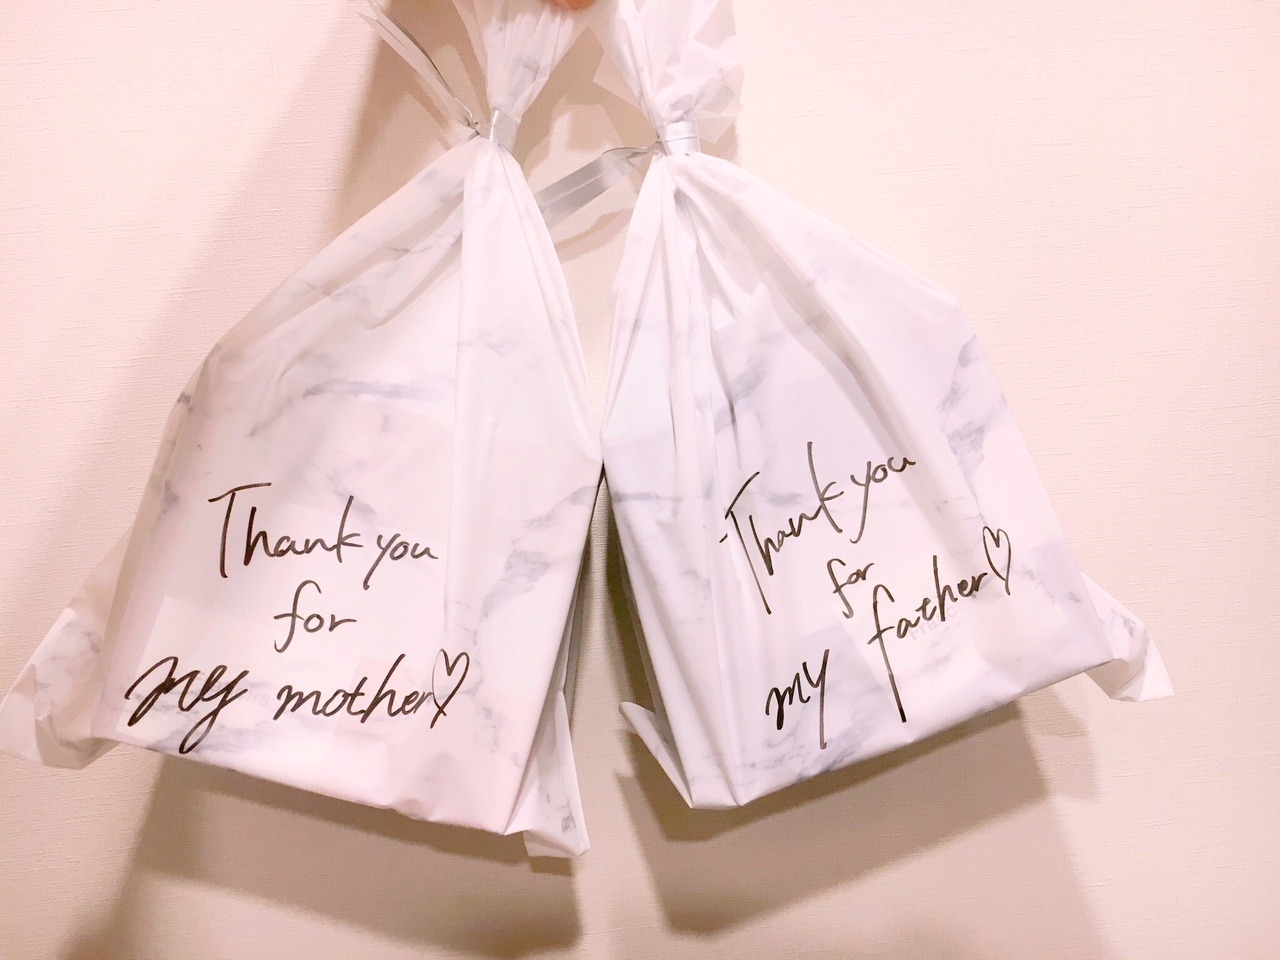 Thank you
for
my mother♡
Thank you
for
my father♡